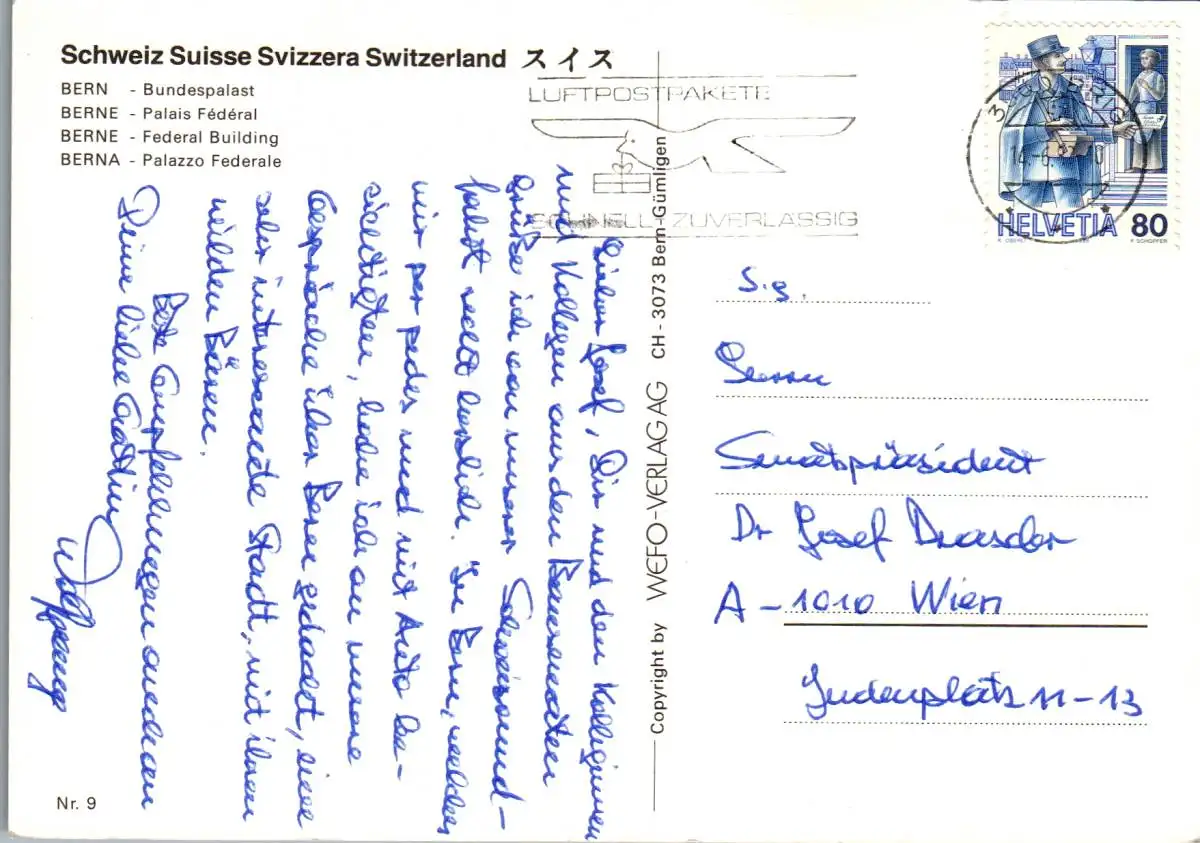 Schweiz Suisse Svizzera Switzerland スイス
BERN - Bundespalast
BERNE - Palais Fédéral
BERNE - Federal Building
BERNA - Palazzo Federale
LUFTPOSTPAKETE
SCHNELL ZUVERLÄSSIG
HELVETIA 80
Lieber Josef, Dir und den Kolleginnen
und Kollegen aus den Bausenaten
grüße ich von unserer Schweizrund-
fahrt recht herzlich. In Bern, welches
wir per pedes und mit Auto be-
sichtigten, habe ich an unsere
Gespräche über Bern gedacht, eine
sehr interessante Stadt, mit ihren
wilden Bären.
Beste Empfehlungen auch an
Deine liebe Gattin
Wolfgang
Copyright by WEFO-VERLAG AG CH - 3073 Bern-Gümligen
S.g.
Herrn
Senatspräsident
Dr Josef Drasder
A - 1010 Wien
Judenplatz 11 - 13
Nr. 9